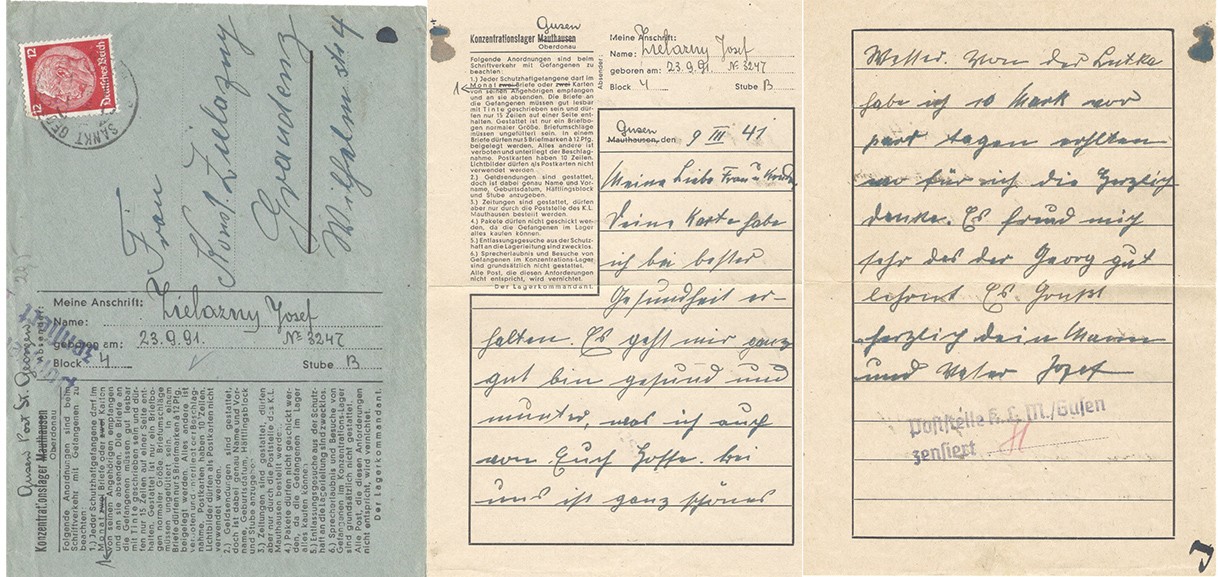 12
12
Deutsches Reich
SANKT GE
Frau
Konst. Zielazny
Graudenz
Wilhelm str 4
Meine Anschrift:
Name: Zielazny Josef
geboren am: 23.9.91. № 3247
Block 4 Stube B
Absender:
zensiert
Gusen Post St. Georgen
Konzentrationslager Mauthausen
Oberdonau
Folgende Anordnungen sind beim
Schriftverkehr mit Gefangenen zu
beachten:
1.) Jeder Schutzhaftgefangene darf im
Monat zwei Briefe oder zwei Karten
von seinen Angehörigen empfangen
und an sie absenden. Die Briefe an
die Gefangenen müssen gut lesbar
mit Tinte geschrieben sein und dür-
fen nur 15 Zeilen auf einer Seite ent-
halten. Gestattet ist nur ein Briefbo-
gen normaler Größe. Briefumschläge
müssen ungefüttert sein. In einem
Briefe dürfen nur 5 Briefmarken à 12 Pfg.
beigelegt werden. Alles andere ist
verboten und unterliegt der Beschlag-
nahme. Postkarten haben 10 Zeilen.
Lichtbilder dürfen als Postkarten nicht
verwendet werden.
2.) Geldsendungen sind gestattet,
doch ist dabei genau Name und Vor-
name, Geburtsdatum, Häftlingsblock
und Stube anzugeben.
3.) Zeitungen sind gestattet, dürfen
aber nur durch die Poststelle des K.L.
Mauthausen bestellt werden.
4.) Pakete dürfen nicht geschickt wer-
den, da die Gefangenen im Lager
alles kaufen können.
5.) Entlassungsgesuche aus der Schutz-
haft an die Lagerleitung sind zwecklos.
6.) Sprecherlaubnis und Besuche von
Gefangenen im Konzentrations-Lager
sind grundsätzlich nicht gestattet.
Alle Post, die diesen Anforderungen
nicht entspricht, wird vernichtet.
Der Lagerkommandant.
1
Gusen
Konzentrationslager Mauthausen
Oberdonau
Folgende Anordnungen sind beim
Schriftverkehr mit Gefangenen zu
beachten:
1.) Jeder Schutzhaftgefangene darf im
1 Monat zwei Briefe oder zwei Karten
von seinen Angehörigen empfangen
und an sie absenden. Die Briefe an
die Gefangenen müssen gut lesbar
mit Tinte geschrieben sein und dür-
fen nur 15 Zeilen auf einer Seite ent-
halten. Gestattet ist nur ein Briefbo-
gen normaler Größe. Briefumschläge
müssen ungefüttert sein. In einem
Briefe dürfen nur 5 Briefmarken à 12 Pfg.
beigelegt werden. Alles andere ist
verboten und unterliegt der Beschlag-
nahme. Postkarten haben 10 Zeilen.
Lichtbilder dürfen als Postkarten nicht
verwendet werden.
2.) Geldsendungen sind gestattet,
doch ist dabei genau Name und Vor-
name, Geburtsdatum, Häftlingsblock
und Stube anzugeben.
3.) Zeitungen sind gestattet, dürfen
aber nur durch die Poststelle des K.L.
Mauthausen bestellt werden.
4.) Pakete dürfen nicht geschickt wer-
den, da die Gefangenen im Lager
alles kaufen können.
5.) Entlassungsgesuche aus der Schutz-
haft an die Lagerleitung sind zwecklos.
6.) Sprecherlaubnis und Besuche von
Gefangenen im Konzentrations-Lager
sind grundsätzlich nicht gestattet.
Alle Post, die diesen Anforderungen
nicht entspricht, wird vernichtet.
Der Lagerkommandant.
Absender:
Meine Anschrift:
Name: Zielazny Josef
geboren am: 23.9.91 № 3247
Block 4 Stube B
Gusen
Mauthausen, den 9 III 41
Meine Liebe Frau u
Deine Karte habe
ich bei bester
Gesundheit er-
halten. Es geht mir ganz
gut bin gesund und
munter, was ich auch
von Euch hoffe. bei
uns ist ganz schönes
Wetter. Von der Lutka
habe ich 10 Mark vor
part tagen erhlten
wo für ich die herzlich
danke. Es freud mich
sehr das der Georg gut
lehrnt Es Grußt
herzlich dein Mann
und Vater Jozef
Poststelle K.L.M./Gusen
zensiert